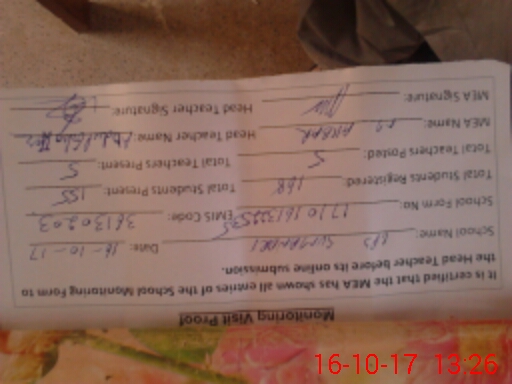 Monitoring Visit Proof
It is certified that the MEA has shown all entries of the School Monitoring Form to
the Head Teacher before its online submission.
School Name: Date: 16-10-17
School Form No: EMIS Code: 36130203
Total Students Registered: 168 Total Students Present: 155
Total Teachers Posted: 5 Total Teachers Present: 5
MEA Name: Head Teacher Name:
MEA Signature: Head Teacher Signature:
16-10-17 13:26